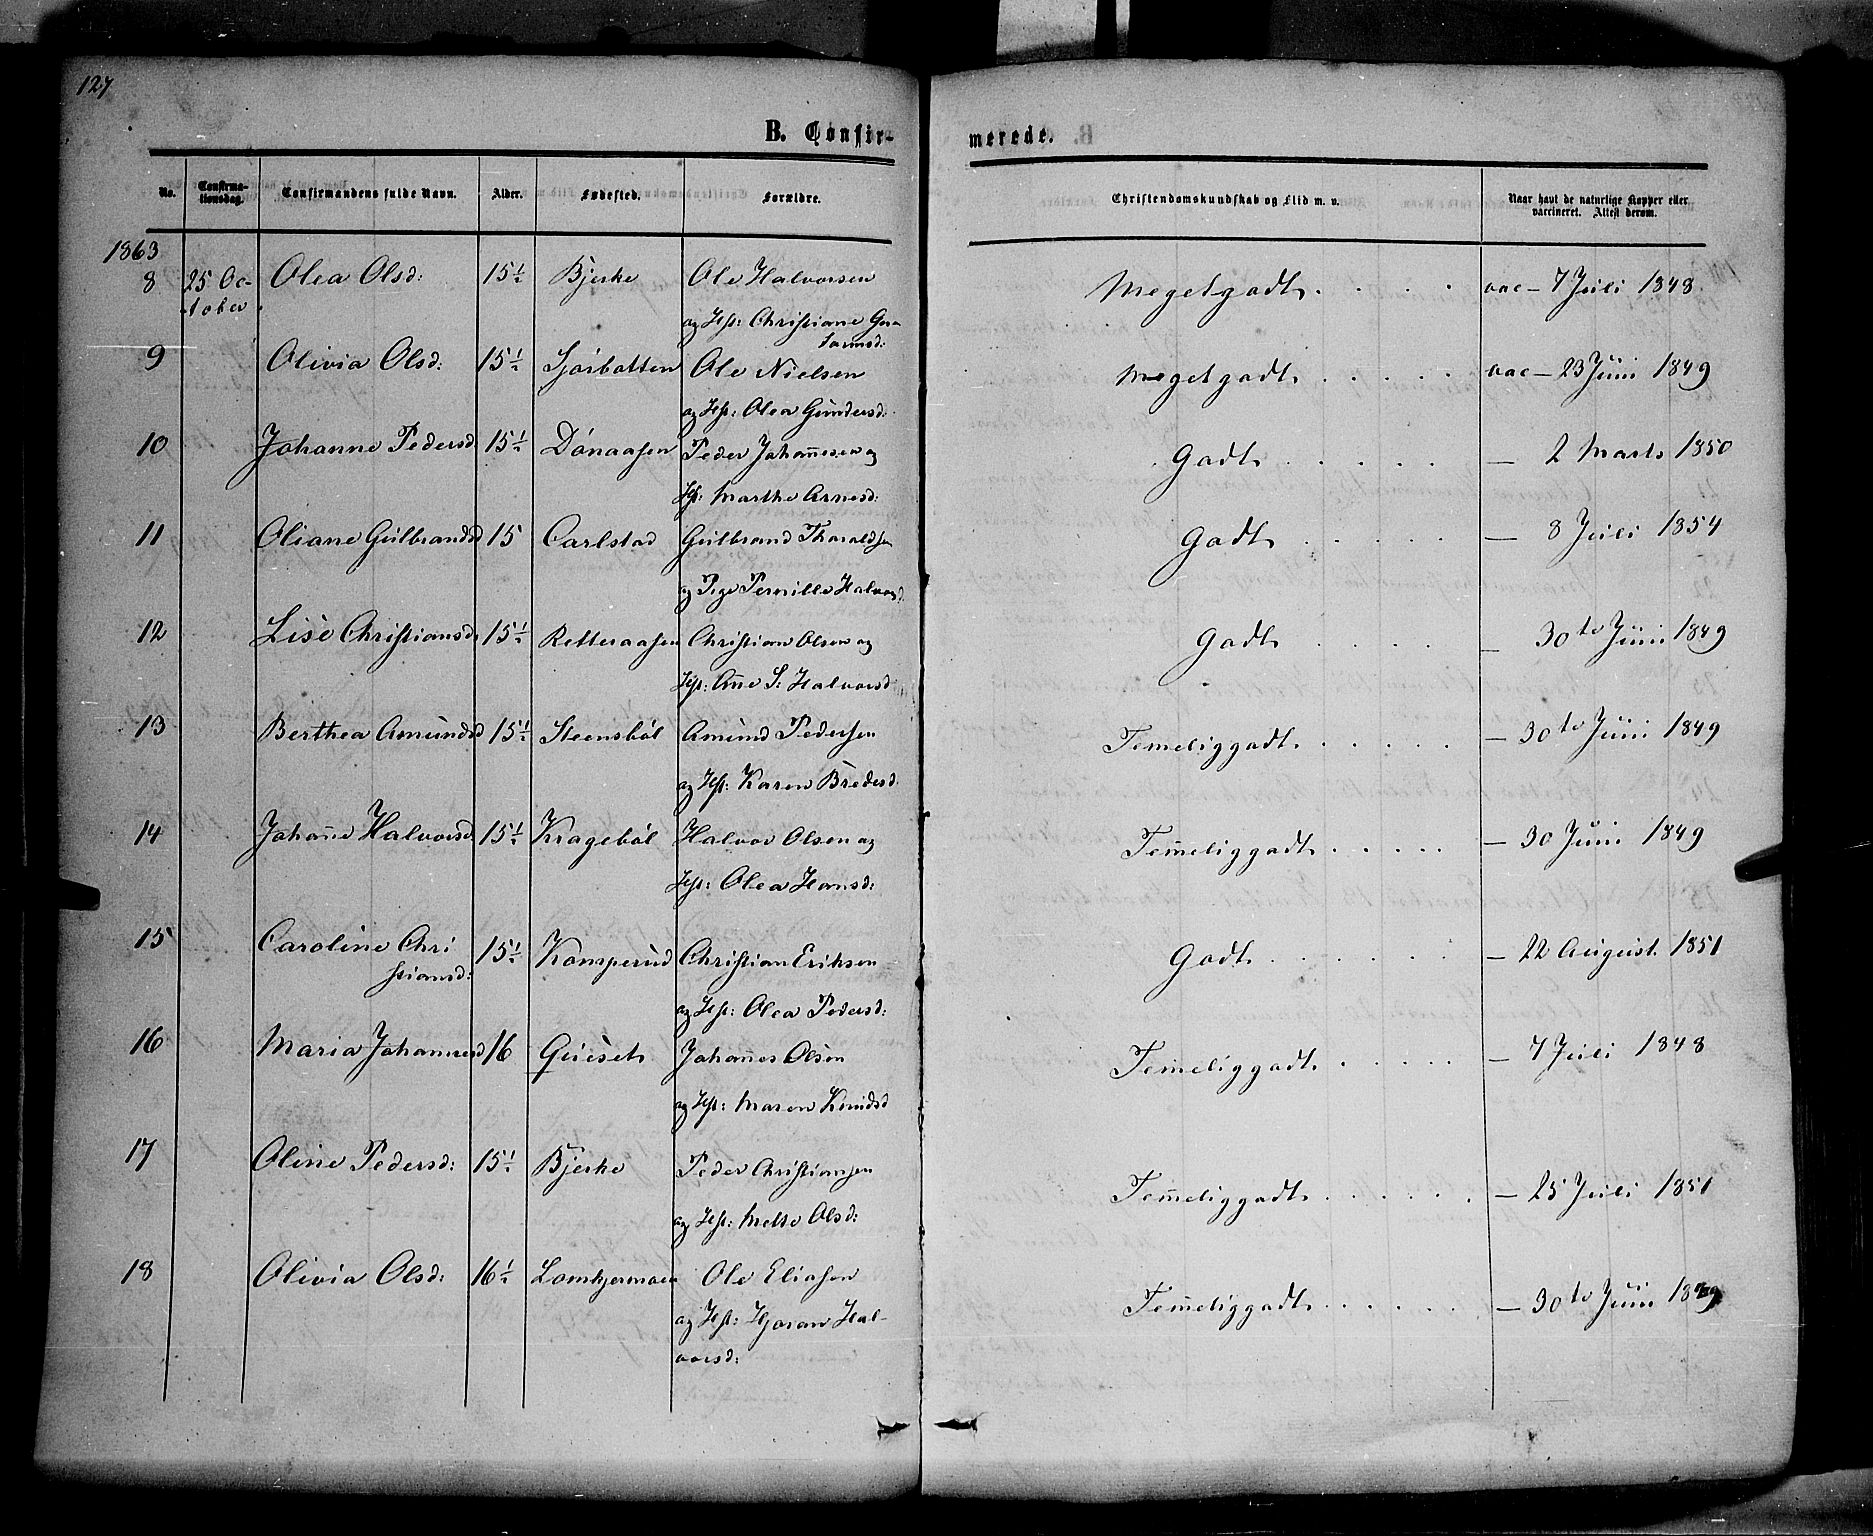 127
B. Confir-
merede.
No.
Confirma-
tionsdag.
Confirmandens fulde Navn.
Alder.
Fødested.
Forældre.
Christendomskundskab og Flid m. v.
Naar havt de naturlige Kopper eller
vaccineret. Attest derom.
1863
8 25 Oc- Olea Olsd: 15½ Bjerke Ole Halvorsen Megetgodt. . . . vac – 7 Juli 1848.
tober. og Hst: Christiane
9 Olivia Olsd: 15½ Sjørbotten Ole Nielsen Megetgodt. . . . . vac – 23 Juni 1849
og Hst: Olea Gundersd:
10 Johanne Pedersd 15½ Dónaasen Peder Johannesen og Godt. . . . . — 2 Marts 1850
Hst: Marthe Arnesd:
11 Oliane Gulbrandsd 15 Carlstad Gulbrand Tharaldsen Godt. . . . . — 8 Juli 1854
og Pige Pernille Halvorsd.
12 Lise Christiansd 15½ Retteraasen Christian Olsen og Godt. . . . — 30te Juni 1849
Hst: Ane S: Halvorsd
13 Berthea Amundsd 15½ Steensbøl Amund Pedersen Temeliggodt. . . . . — 30te Juni 1849
og Hst: Karen Bredesd.
14 Johane Halvorsd 15½ Kragebøl Halvor Olsen og Temeliggodt. . . . . — 30 Juni 1849
Hst: Olea Hansd:
15 Caroline Chri 15½ Komperud Christian Eriksen Godt. . . . . — 22 August 1851
stiansd:
og Hst: Olea Pedersd:
16 Maria Johannesd 16 Guuset Johanes Olsen Temeliggodt. . . . — 7 Juli 1848
og Hst: Maren Knudsd
17 Oline Pedersd: 15½ Bjerke Peder Christiansen Temeliggodt. . . . . — 25 Juli 1851
og Hst: Mette Olsd:
18 Olivia Olsd: 16½ Lomkjermoen Ole Eliasen Temeliggodt. . . . . — 30te Juni 1849
og Hst: Hjoran Hal-
vorsd: